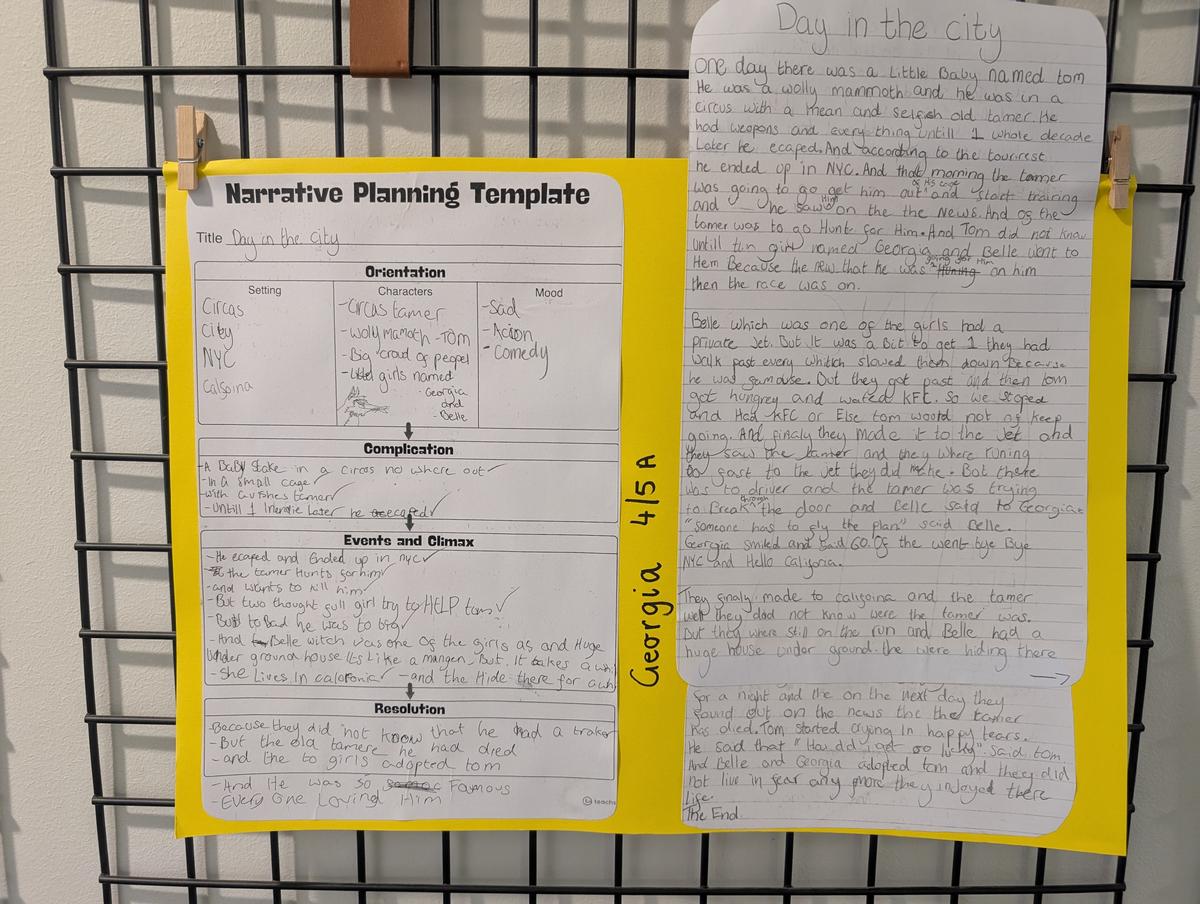 Narrative Planning Template
Title Day in the city
Orientation
Setting
Circas
City
NYC
Calfoina
Characters
-Circas tamer
-Wolly mamoth -Tom
-Big croud of peopel
-Littel girls named
-Georgia
and
-Belle
Mood
-Sad
-Acion
-Comedy
Complication
-A Baby Stoke in a Circos no where out
-In a small cage
-with Crushes tamar
-Untill 1 Later he ecaped
Events and Climax
-He ecaped and Ended up in nyc
the tamer Hunts for him
-and wants to kill him
-But two thought full girl try to HELP tom
-But to Bad he was to big
-And Belle witch was one of the girls as and Huge
Under ground house Its Like a mangen, But. It takes a whi
-She Lives In calofonia -and the Hide there for a whi
Resolution
-Because they did not know that he had a traker
-But the old tamere he had died
-and the to girls adopted tom
-And He was so Famous
-Every one Loving Him
© teachs
Georgia 4/5 A
Day in the city
One day there was a Little Baby named tom
He was a wolly mammoth and he was in a
circus with a mean and selfish old tamer. He
had weapons and every thing untill 1 whole decade
Later he ecaped. And according to the tourirest
he ended up in NYC. And that morning the tamer
was going to go get him out of His cage and start training
and he saw Him on the the News. And of the
tamer was to go Hunte for Him. And Tom did not know
untill girl named Georgia and Belle went to
Hem Because the new that he was going for Him on him
then the race was on.
Belle which was one of the girls had a
Private Jet. But It was a Bit to get 1 they had
walk past every whitch slowed them down Because
he was famouse. But they got past and then tom
got hungrey and wated KFC. So we stoped
and Had KFC or Else tom woold not of keep
going. And finaly they made it to the Jet and
they saw the tamer and they where runing
so fast to the Jet they did make. But there
was to driver and the tamer was trying
to Break through the door and Belle said to Georgia
"someone has to fly the plan" said Belle.
Georgia smiled and said GO. Of the went bye Bye
NYC and Hello califona.
They finaly made to califoina and the tamer
well they did not know were the tamer was.
But they where still on the run and Belle had a
huge house under ground. the were hiding there
for a night and the on the next day they
found out on the news the the tamer
Has died. Tom started crying in happy tears.
He sad that "How did I get so lucky". Said tom
And Belle and Georgia adopted tom and they did
not live in fear any more they injoyed there
Life.
The End